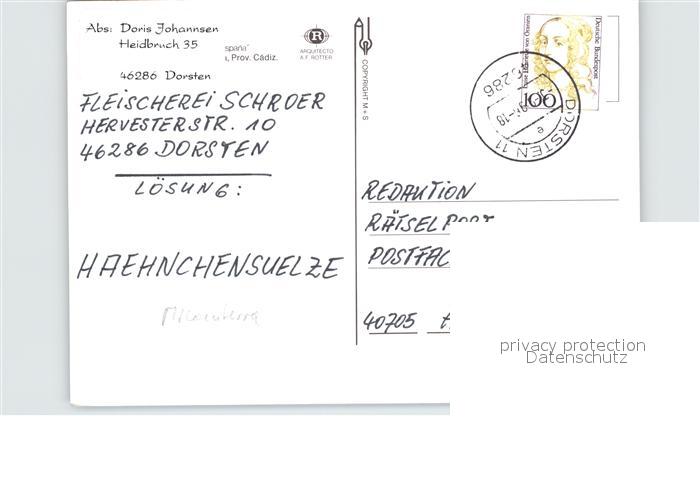 Abs: Doris Johannsen
Heidbruch 35
46286 Dorsten
spaña"
, Prov. Cádiz.
R
ARQUITECTO
A.F. ROTTER
COPYRIGHT M + S
FLEISCHEREI SCHROER
HERVESTERSTR. 10
46286 DORSTEN
LÖSUNG:
HAEHNCHENSUELZE
Deutsche Bundespost
von Oranien
100
DORSTEN 11
e
REDAKTION
RÄTSELPOST
POSTFAC
40705
privacy protection
Datenschutz